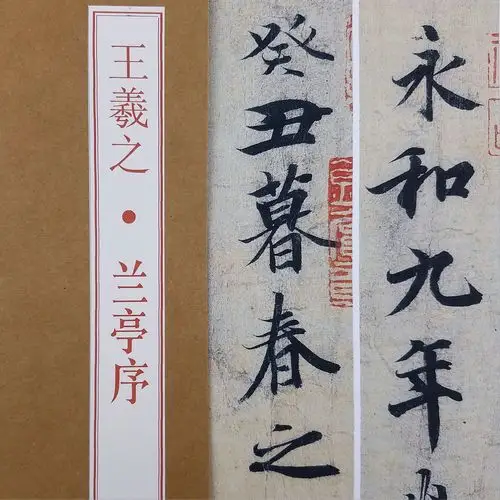 王羲之·兰亭序
永和九年
癸丑暮春之